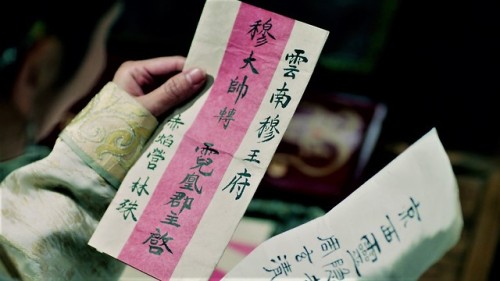 雲南穆王府
穆大帥轉 霓凰郡主啓
赤焰營林殊
京西靈